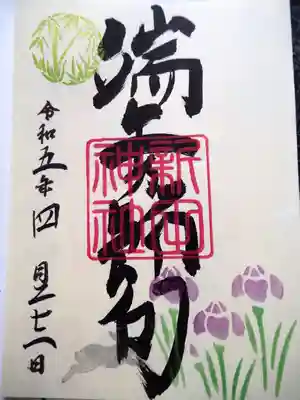 端午節句
新田
神社
令和五年四月二十七日